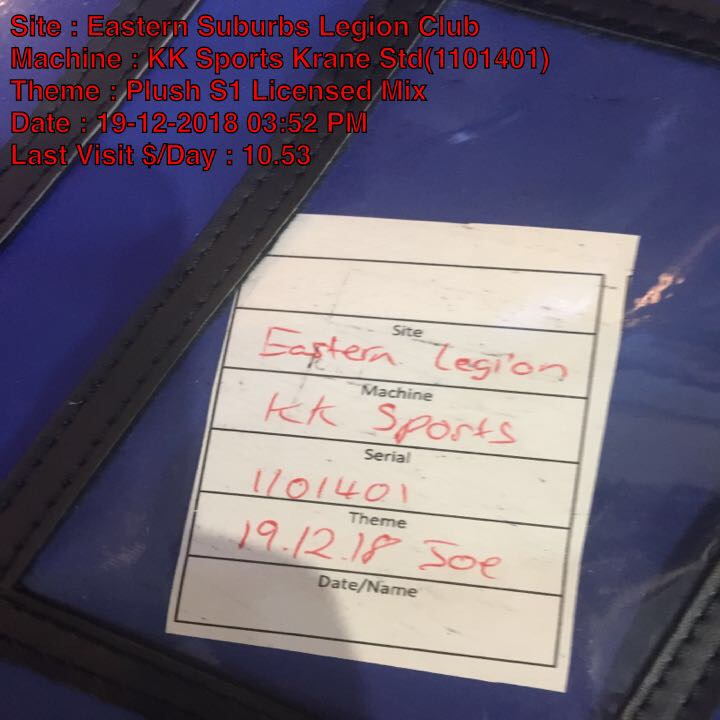 Site : Eastern Suburbs Legion Club
Machine : KK Sports Krane Std(1101401)
Theme : Plush S1 Licensed Mix
Date : 19-12-2018 03:52 PM
Last Visit $/Day : 10.53
Site
Eastern Legion
Machine
KK Sports
Serial
1101401
Theme
19.12.18 Joe
Date/Name